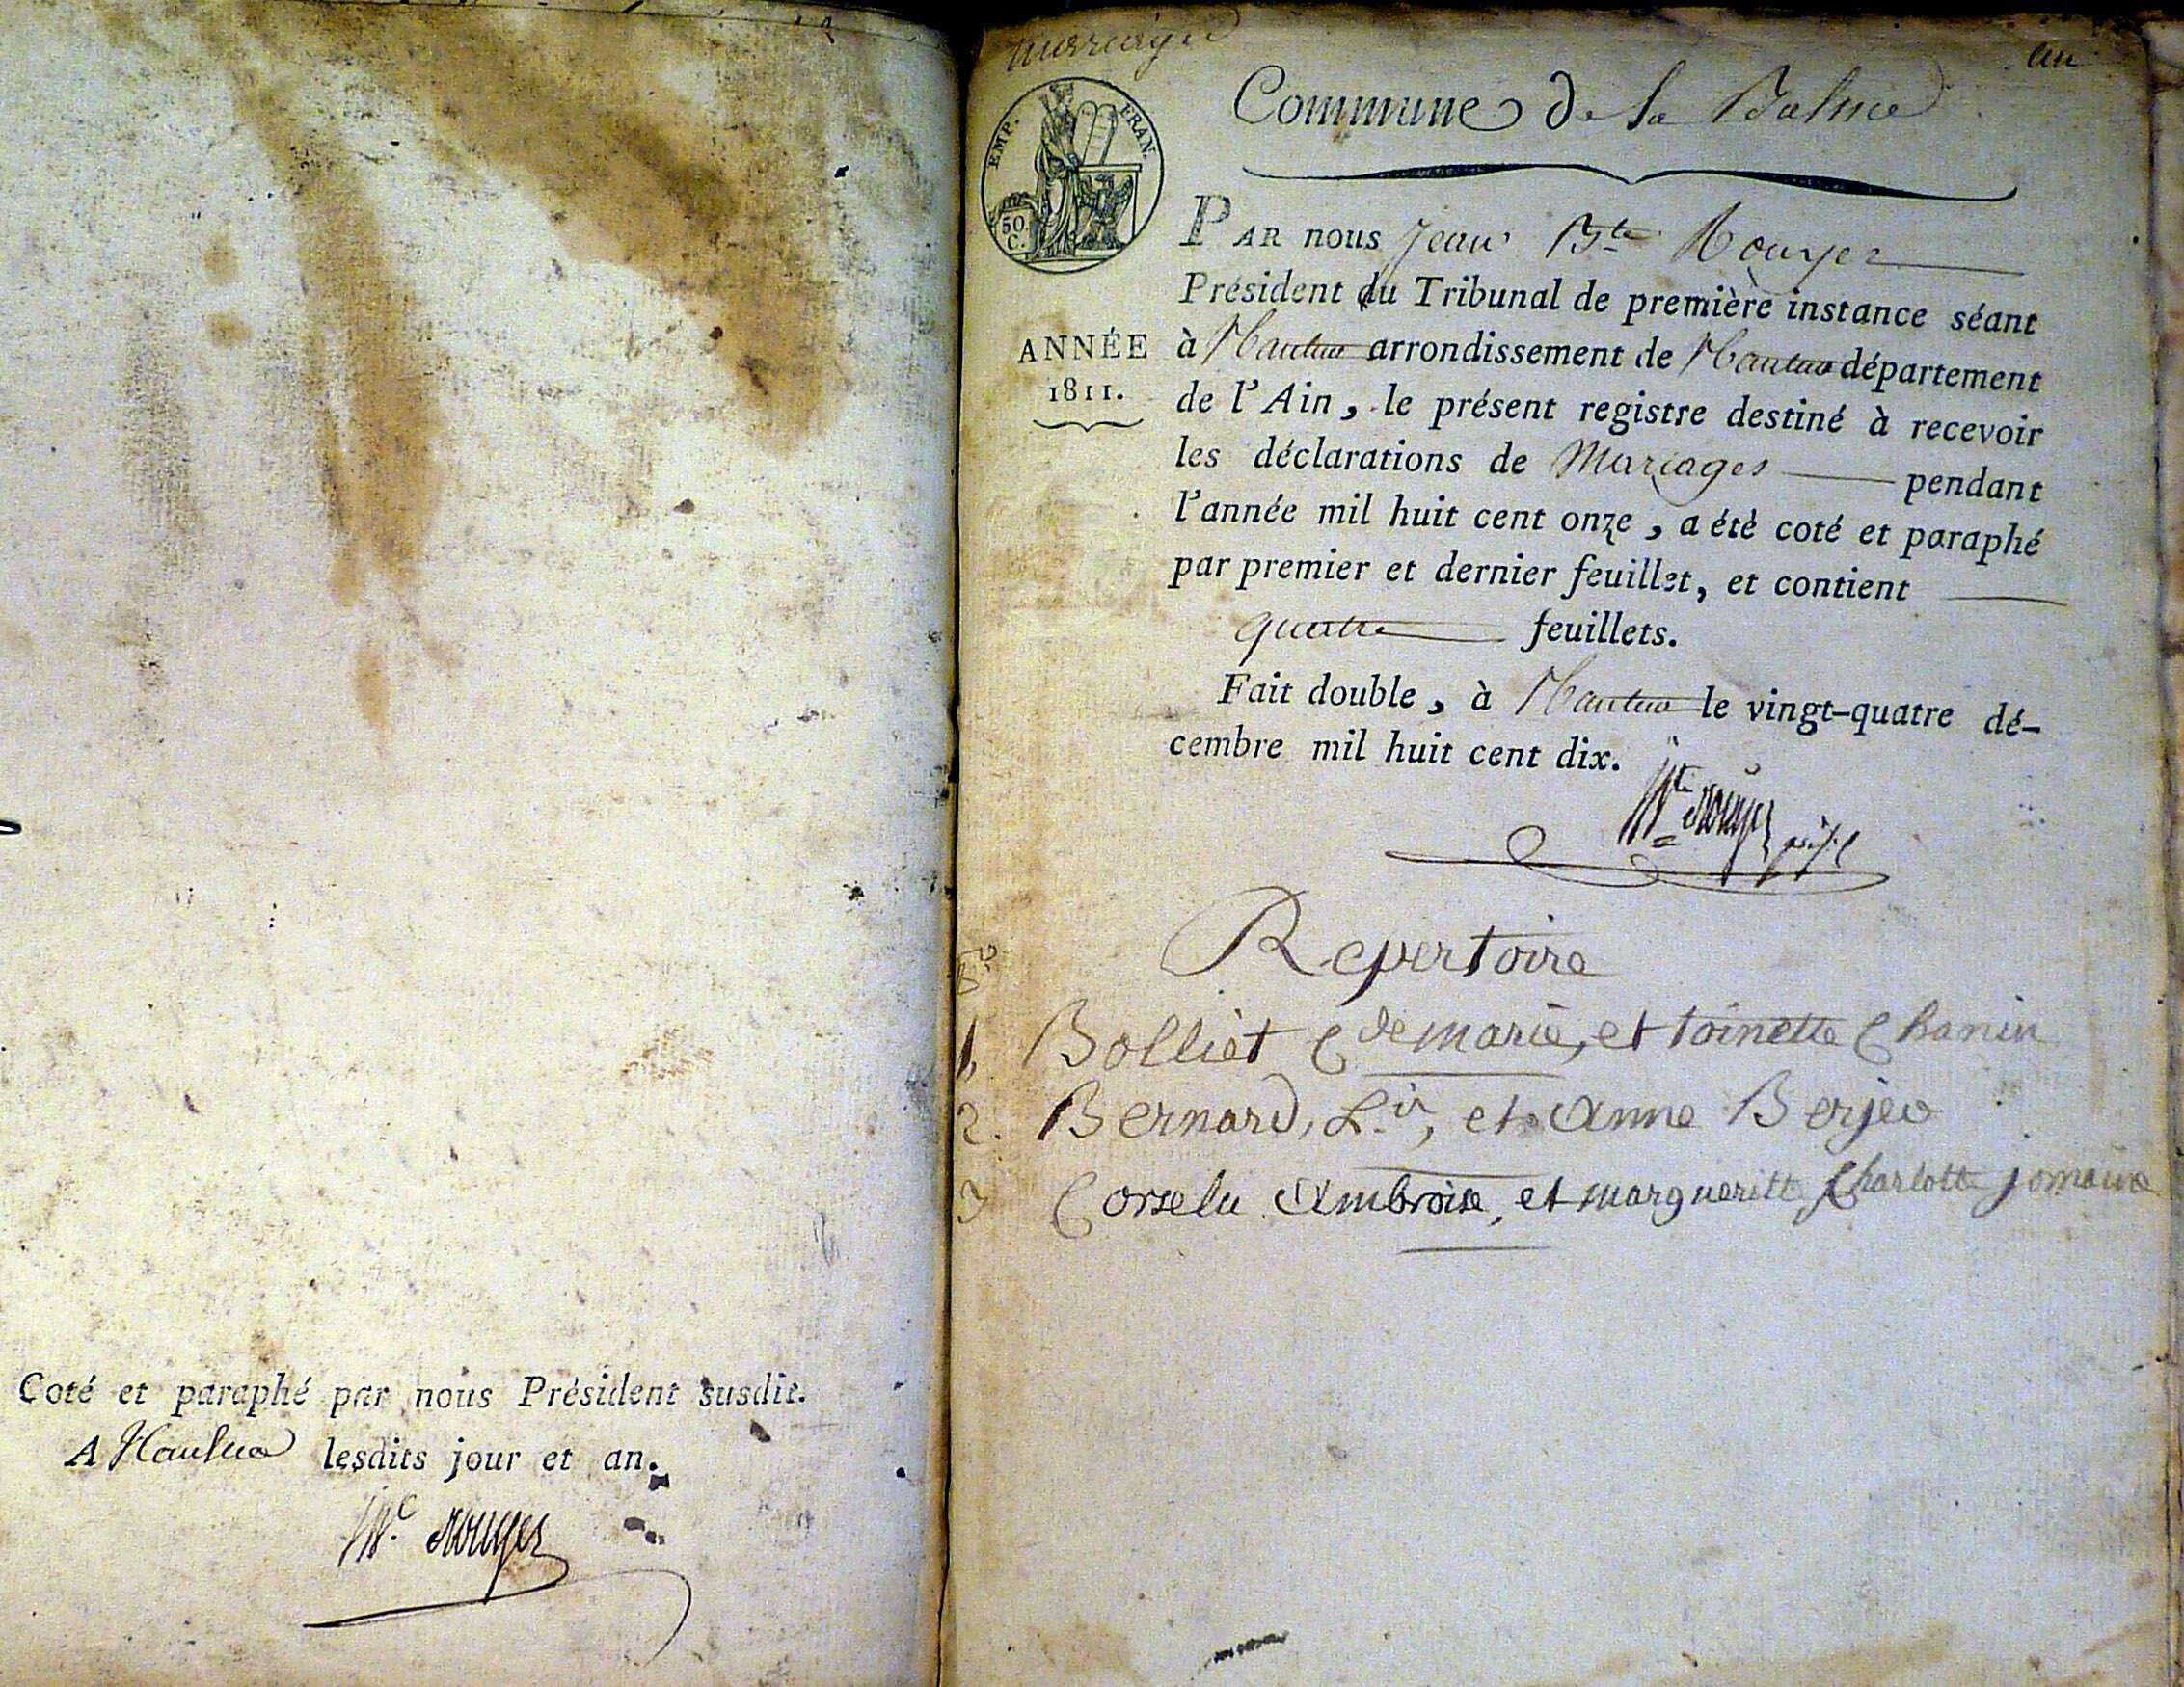 Coté et paraphé par nous Président susdit.
A Nantua lesdits jour et an.
Rouyer
mariages
un
Commune de la Balme
EMP. FRAN.
50.
C.
ANNÉE
1811.
PAR nous Jean Bte Rouyer
Président du Tribunal de première instance séant
à Nantua arrondissement de Nantua département
de l'Ain, le présent registre destiné à recevoir
les déclarations de Mariages pendant
l'année mil huit cent onze, a été coté et paraphé
par premier et dernier feuillet, et contient
quatre feuillets.
Fait double, à Nantua le vingt-quatre dé-
cembre mil huit cent dix.
Rouyer
Repertoire
1. Bolliet Cde marie, et toinette Chanin
2. Bernard, et Anne Berjeo
3 Ambroise, et margueritte Charlotte